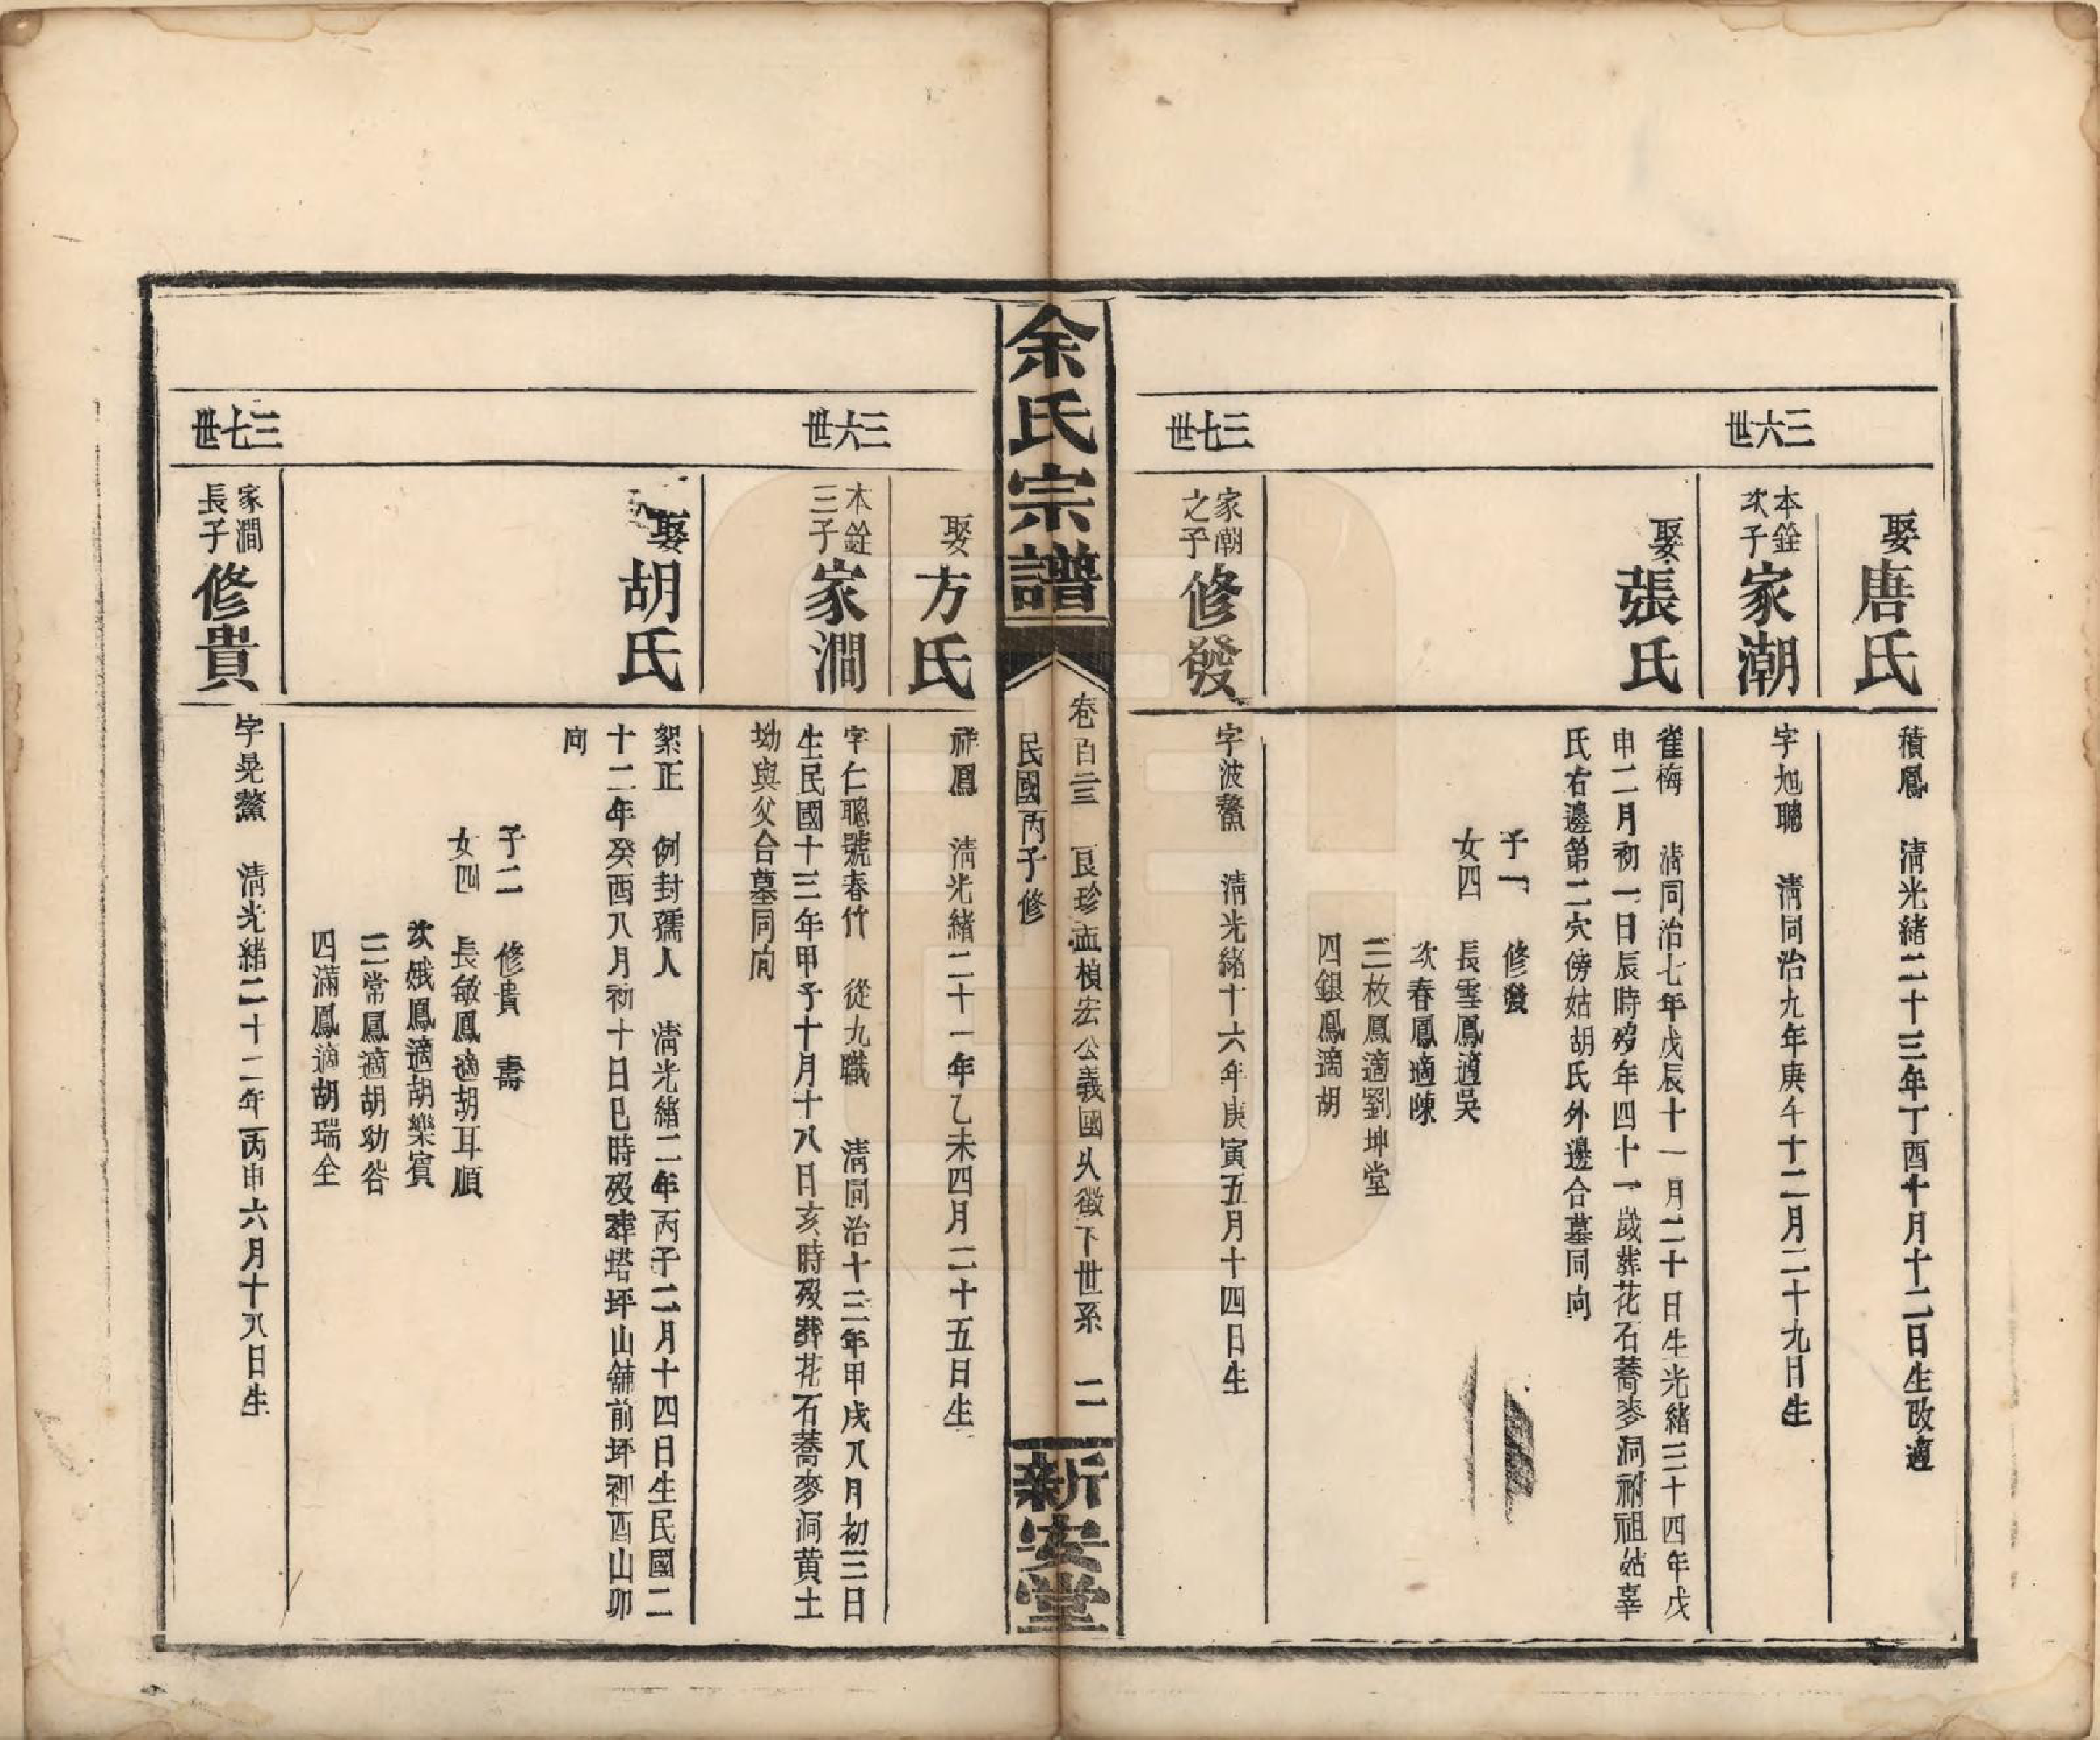 娶唐氏
積鳳　清光緒二十三年丁酉十月十二日生改適
三六世
本銓次子家潮
字旭聰　清同治九年庚午十二月二十九日生
娶張氏
雀梅　清同治七年戊辰十一月二十日生光緒三十四年戊
申二月初一日辰時歿年四十一歲葬花石蕎麥洞祔祖姑辜
氏右邊第二穴傍姑胡氏外邊合墓同向
子一　修發
女四　長雪鳳適吳
次春鳳適陳
三枚鳳適劉坤堂
四銀鳳適胡
三七世
家潮之子修發
字波鰲　清光緒十六年庚寅五月十四日生
余氏宗譜
卷百二三　良珍孟楨宏公義國火徵下世系　二
民國丙子修
新安堂
娶方氏
祥鳳　清光緒二十一年乙未四月二十五日生
三六世
本銓三子家澗
字仁聰號春竹　從九職　清同治十三年甲戌八月初三日
生民國十三年甲子十月十八日亥時歿葬花石蕎麥洞黃土
坳與父合墓同向
娶胡氏
絮正　例封孺人　清光緒二年丙子二月十四日生民國二
十二年癸酉八月初十日巳時歿葬塔坪山舖前坪卿酉山卯
向
子二　修貴　壽
女四　長敏鳳適胡耳順
次娥鳳適胡樂賓
三常鳳適胡幼谷
四滿鳳適胡瑞全
三七世
家澗長子修貴
字晃鰲　清光緒二十二年丙申六月十八日生